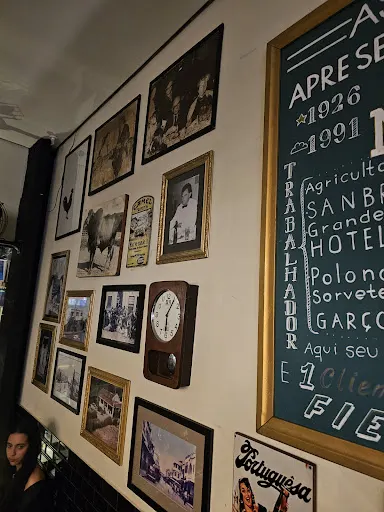 A
APRESE
☆1926
1991
TRABALHADOR
Agricult
SANB
Grande
HOTEL
Polon
Sorvete
GARÇO
Aqui seu
E 1 Clien
FIE
Portuguêsa